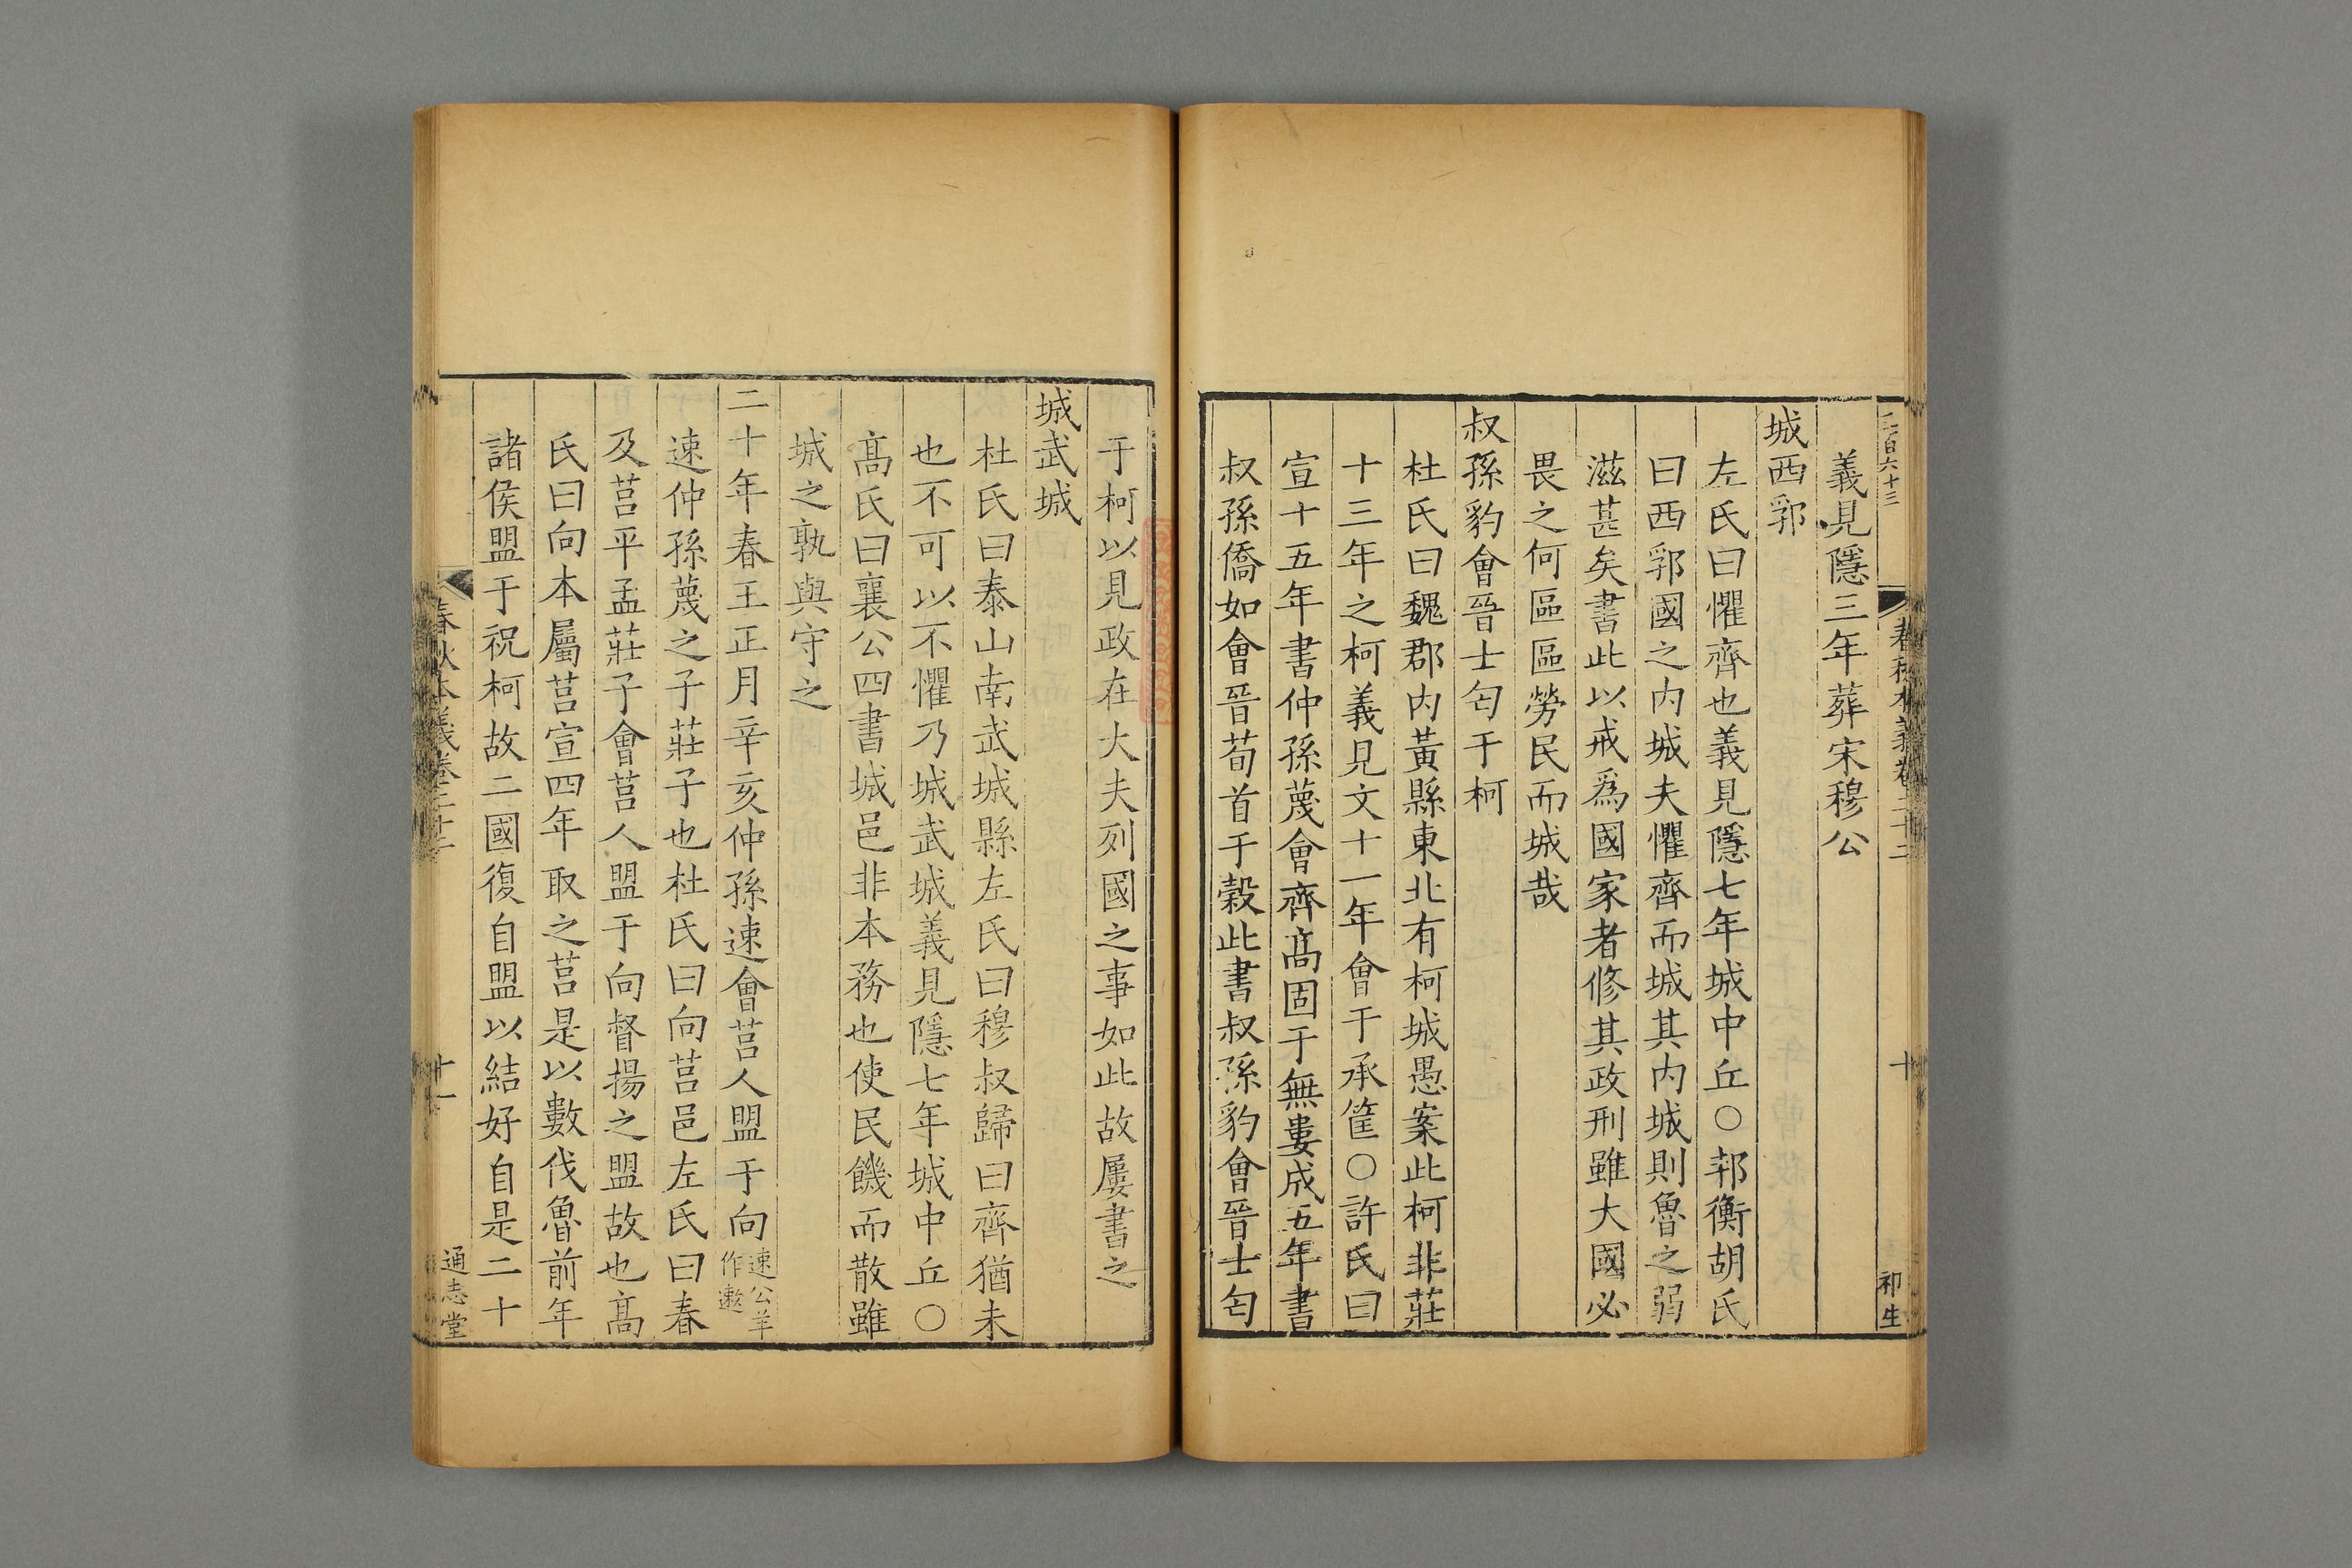 二百六十三
春秋本義卷二十二
十
祁生
義見隱三年葬宋穆公
城西郛
左氏曰懼齊也義見隱七年城中丘○邦衡胡氏
曰西郛國之内城夫懼齊而城其内城則魯之弱
滋甚矣書此以戒爲國家者修其政刑雖大國必
畏之何區區勞民而城哉
叔孫豹會晉士匄于柯
杜氏曰魏郡内黃縣東北有柯城愚案此柯非莊
十三年之柯義見文十一年會于承筐○許氏曰
宣十五年書仲孫蔑會齊髙固于無婁成五年書
叔孫僑如會晉荀首于穀此書叔孫豹會晉士匄
于柯以見政在大夫列國之事如此故屢書之
城武城
杜氏曰泰山南武城縣左氏曰穆叔歸曰齊猶未
也不可以不懼乃城武城義見隱七年城中丘○
髙氏曰襄公四書城邑非本務也使民饑而散雖
城之孰與守之
二十年春王正月辛亥仲孫速會莒人盟于向速公羊作遬
速仲孫蔑之子莊子也杜氏曰向莒邑左氏曰春
及莒平孟莊子會莒人盟于向督揚之盟故也髙
氏曰向本屬莒宣四年取之莒是以數伐魯前年
諸侯盟于祝柯故二國復自盟以結好自是二十
春秋本義卷二十二
十一
通志堂